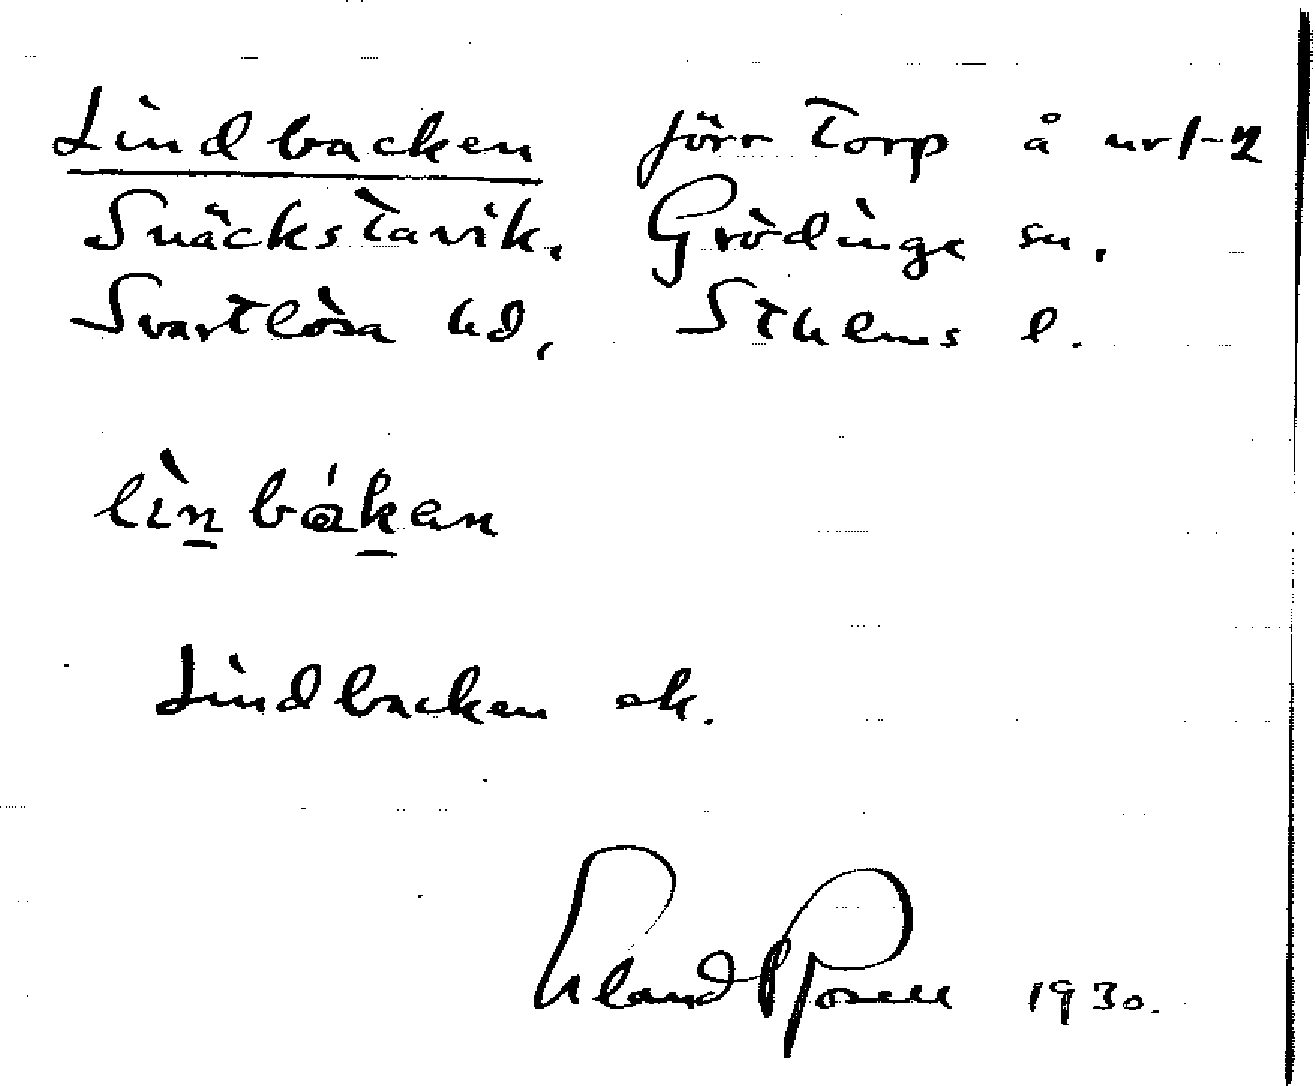 Lindbacken förr Torp å nr 1-2
Snäckstavik, Grödinge sn.
Svartlösa hd, Sthlms l.
lìn bákan
Lindbacken ek.
Erland Rosell 1930.